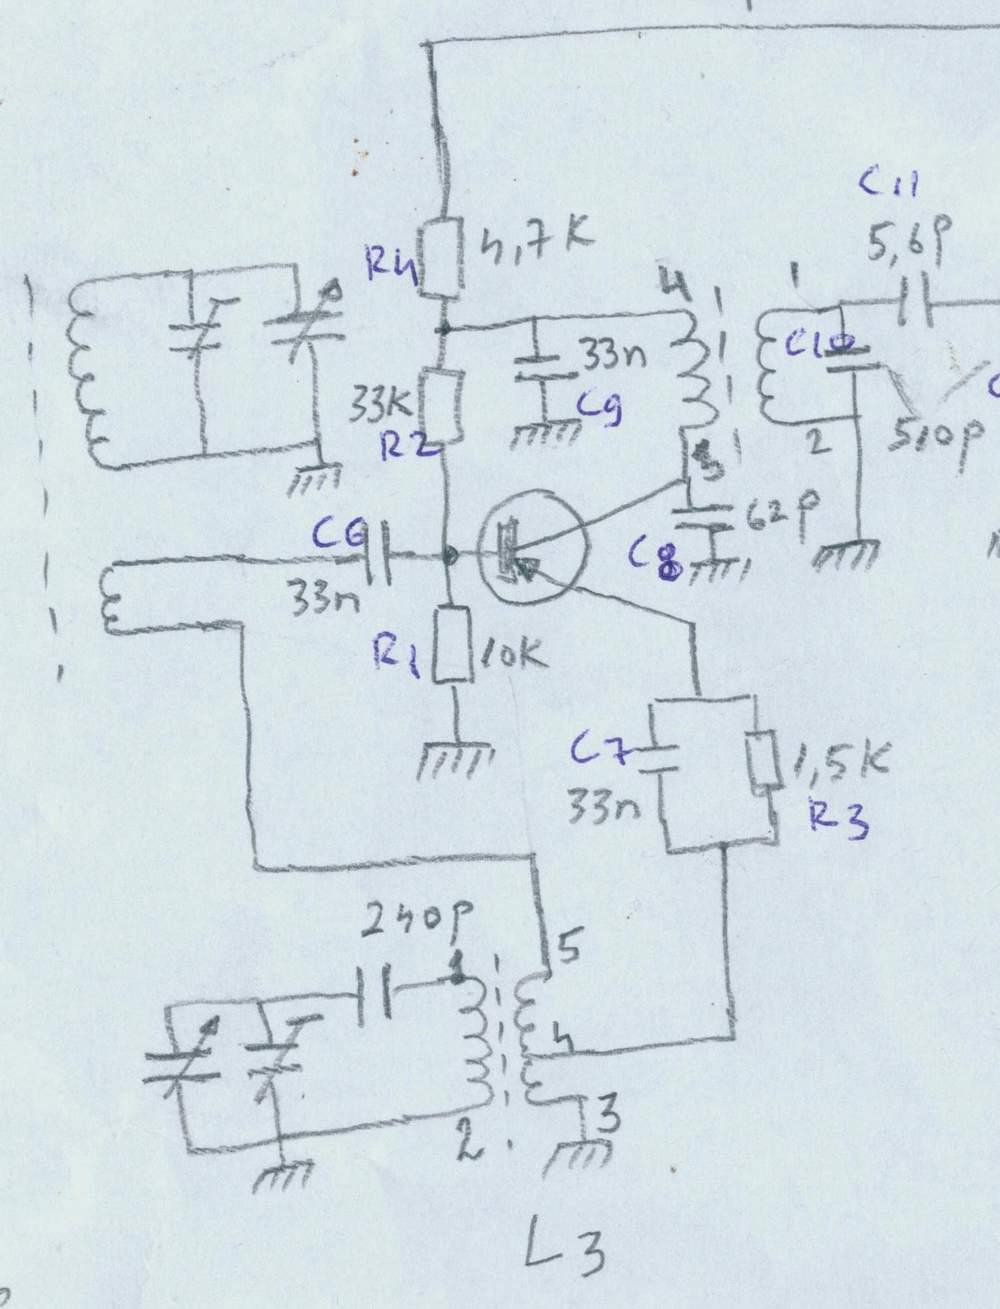 C11
5,6p
R4
4,7K
4
1
33n
C9
C10
33K
R2
510p
2
3
62p
C6
33n
C8
R1
10K
C7
33n
1,5K
R3
240p
1
5
4
3
2
L3